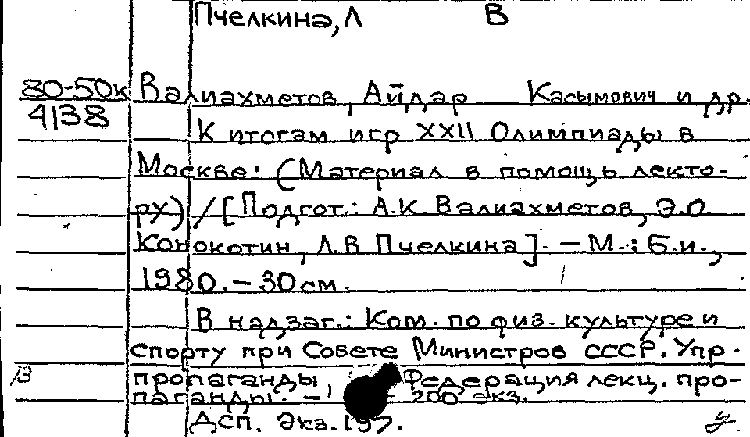 Пчелкина, Л В
80-50к Валиахметов, Айдар Касымович и др.
4138
К итогам игр XXII Олимпиады в
Москве: (Материал в помощь лекто-
ру) / [Подгот.: А.К. Валиахметов, Э.О.
Конокотин, Л.В. Пчелкина]. - М.: Б.и.,
1980. - 30 см.
В надзаг.: Ком. по физ. культуре и
спорту при Совете Министров СССР. Упр.
пропаганды, Федерация лекц. про-
паганды. - 200 экз.
Дсп. Экз. 197.